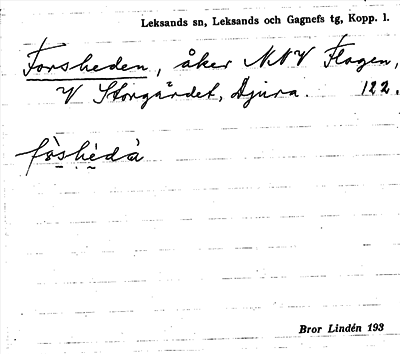 Leksands sn, Leksands och Gagnefs tg, Kopp. l.
Forsheden, åker NNV Flogen,
V Storgärdet, Djura. 122.
fòshèdà
Bror Lindén 193